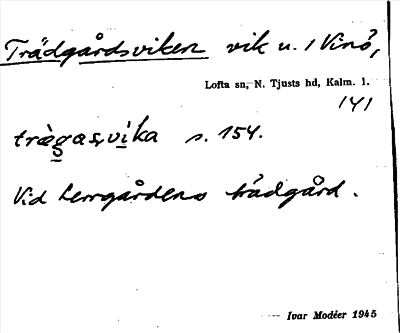 Trädgårdsviken vik u. / Vinö,
Lofta sn, N. Tjusts hd, Kalm. l.
141
trägas,vika s. 154.
Vid herrgårdens trädgård.
Ivar Modéer 1945